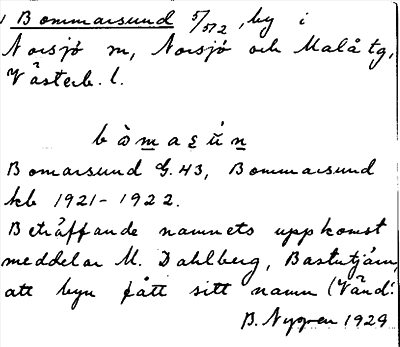 Bommarsund 5/572, by i
Norsjö sn, Norsjö och Malå tg,
Västerb. l.
Bomarsund G. 43, Bommarsund
kb 1921-1922.
Beträffande namnets uppkomst
meddelar M. Dahlberg, Bastutjärn,
att byn fått sitt namn (Vänd!
B. Nygren 1929